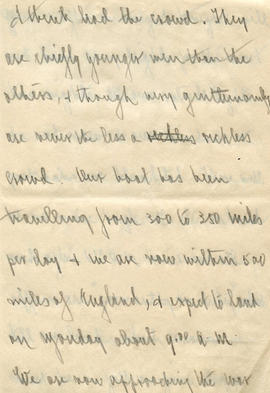 I think had the crowd. They
are chiefly younger men than the
others, & though very gentlemanly
are never the less a reckless rickless
crowd. Our boat has been
travelling from 300 to 350 miles
per day & we are now within 500
miles of England, & expect to land
on Monday about 9.00 A.M.
We are now approaching the war